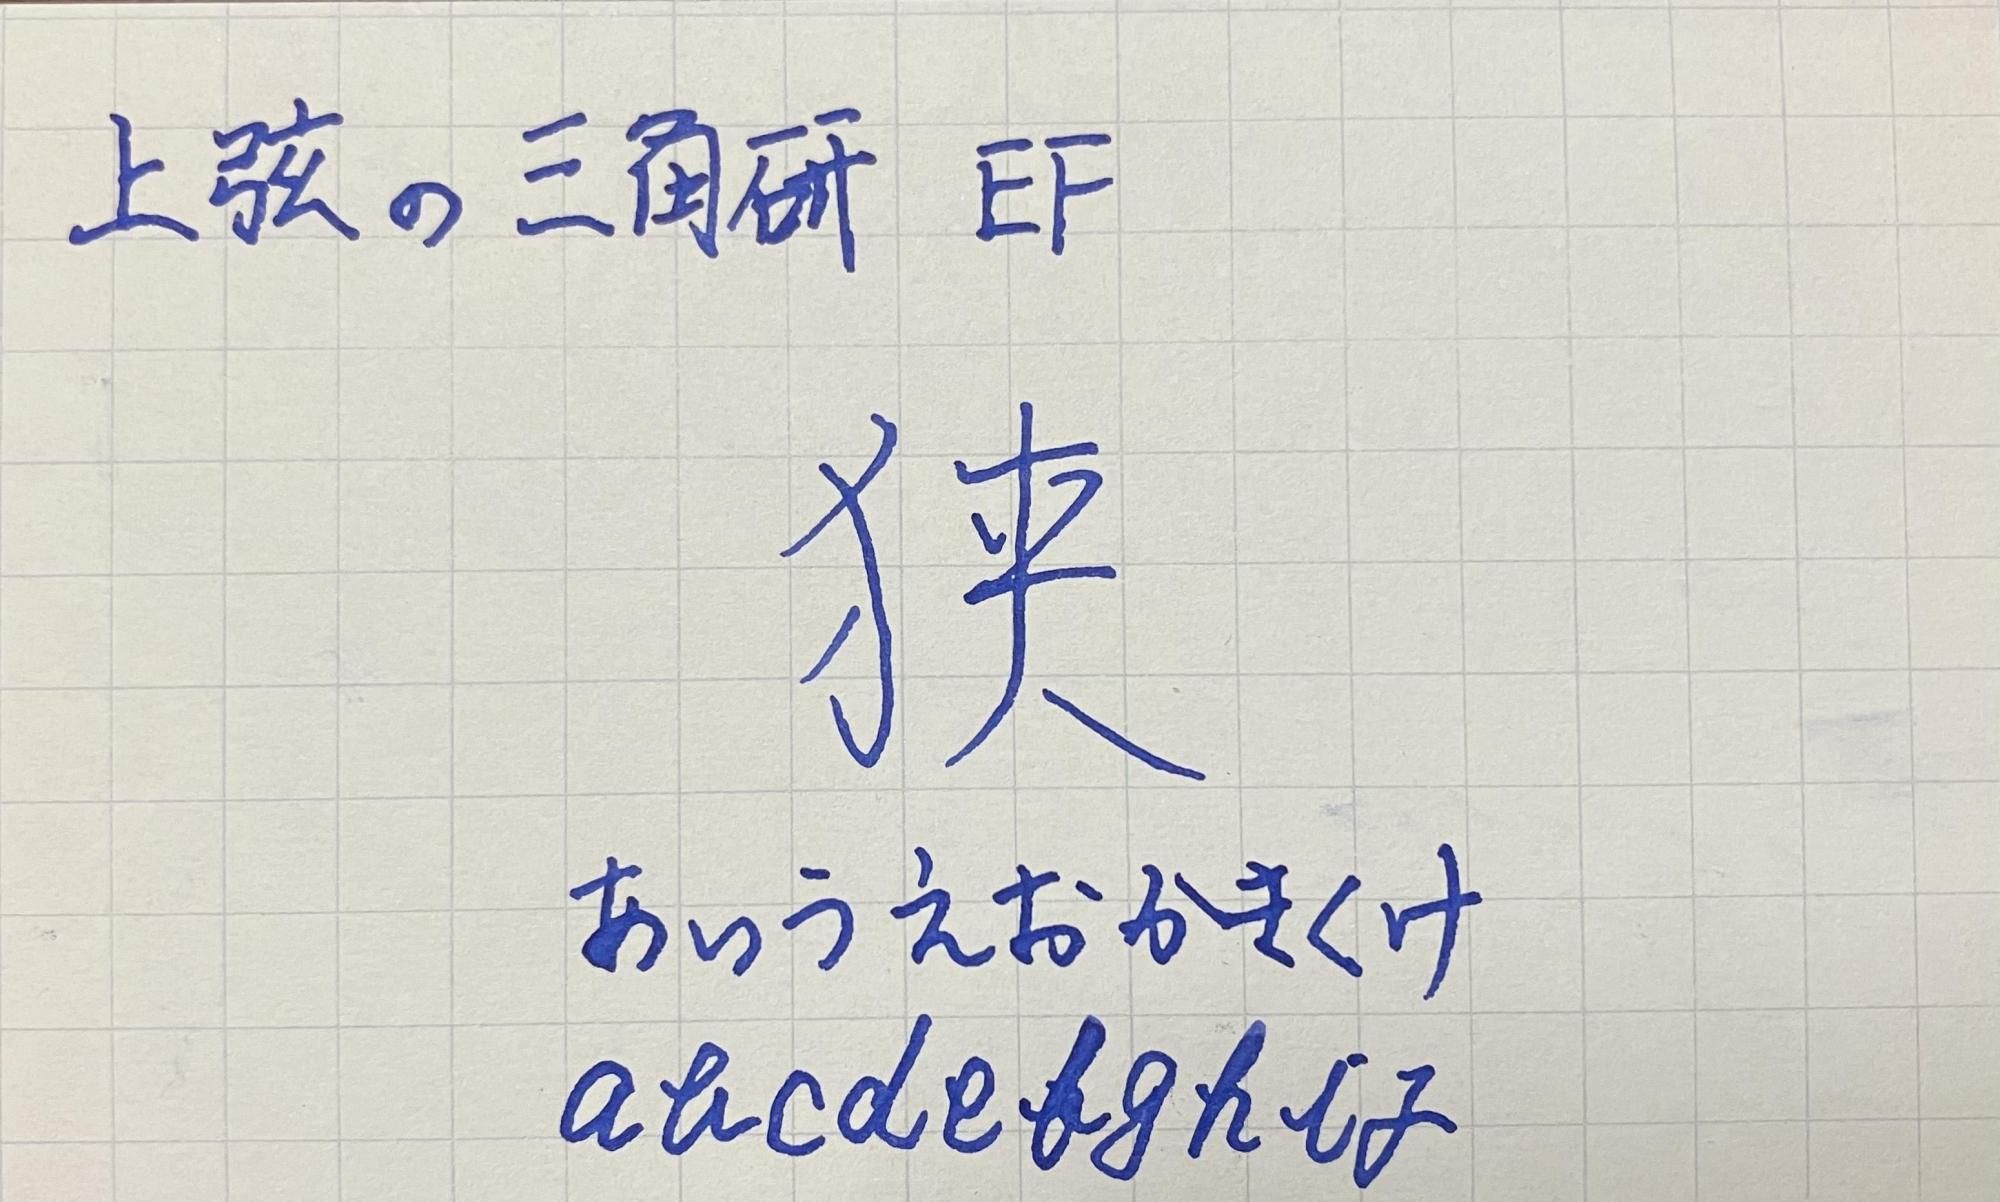 上弦の三角研 EF
狭
あいうえおかきくけ
abcdefghij